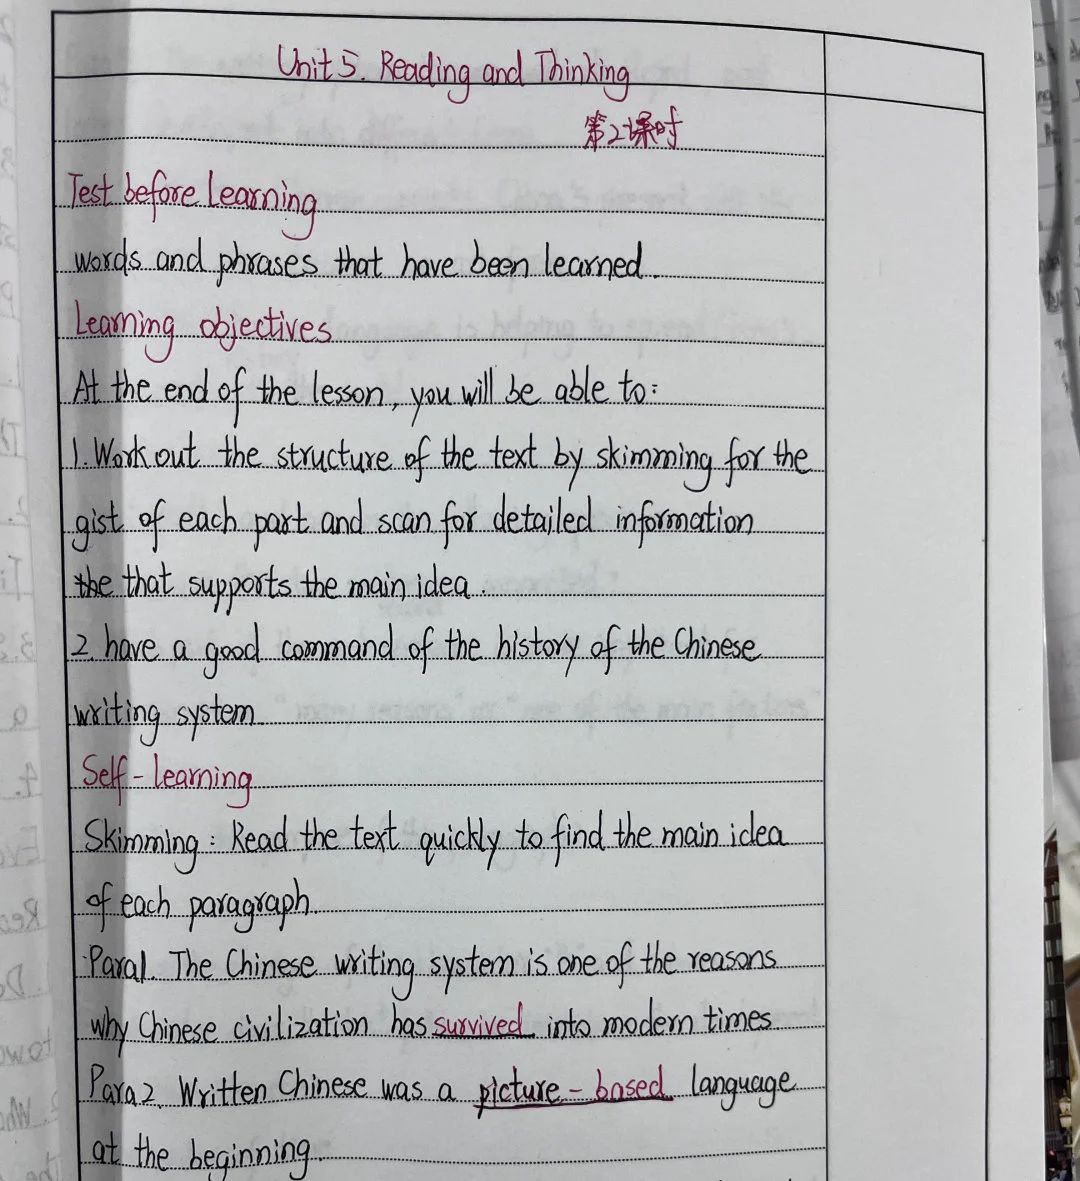 Unit 5. Reading and Thinking
第2课时
Test before learning
words and phrases that have been learned.
Learning objectives
At the end of the lesson, you will be able to:
1. Work out the structure of the text by skimming for the
gist of each part and scan for detailed information
the that supports the main idea.
2. have a good command of the history of the Chinese
writing system
Self-learning
Skimming: Read the text quickly to find the main idea
of each paragraph.
Para1. The Chinese writing system is one of the reasons
why Chinese civilization has survived into modern times
Para2. Written Chinese was a picture-based language
at the beginning.